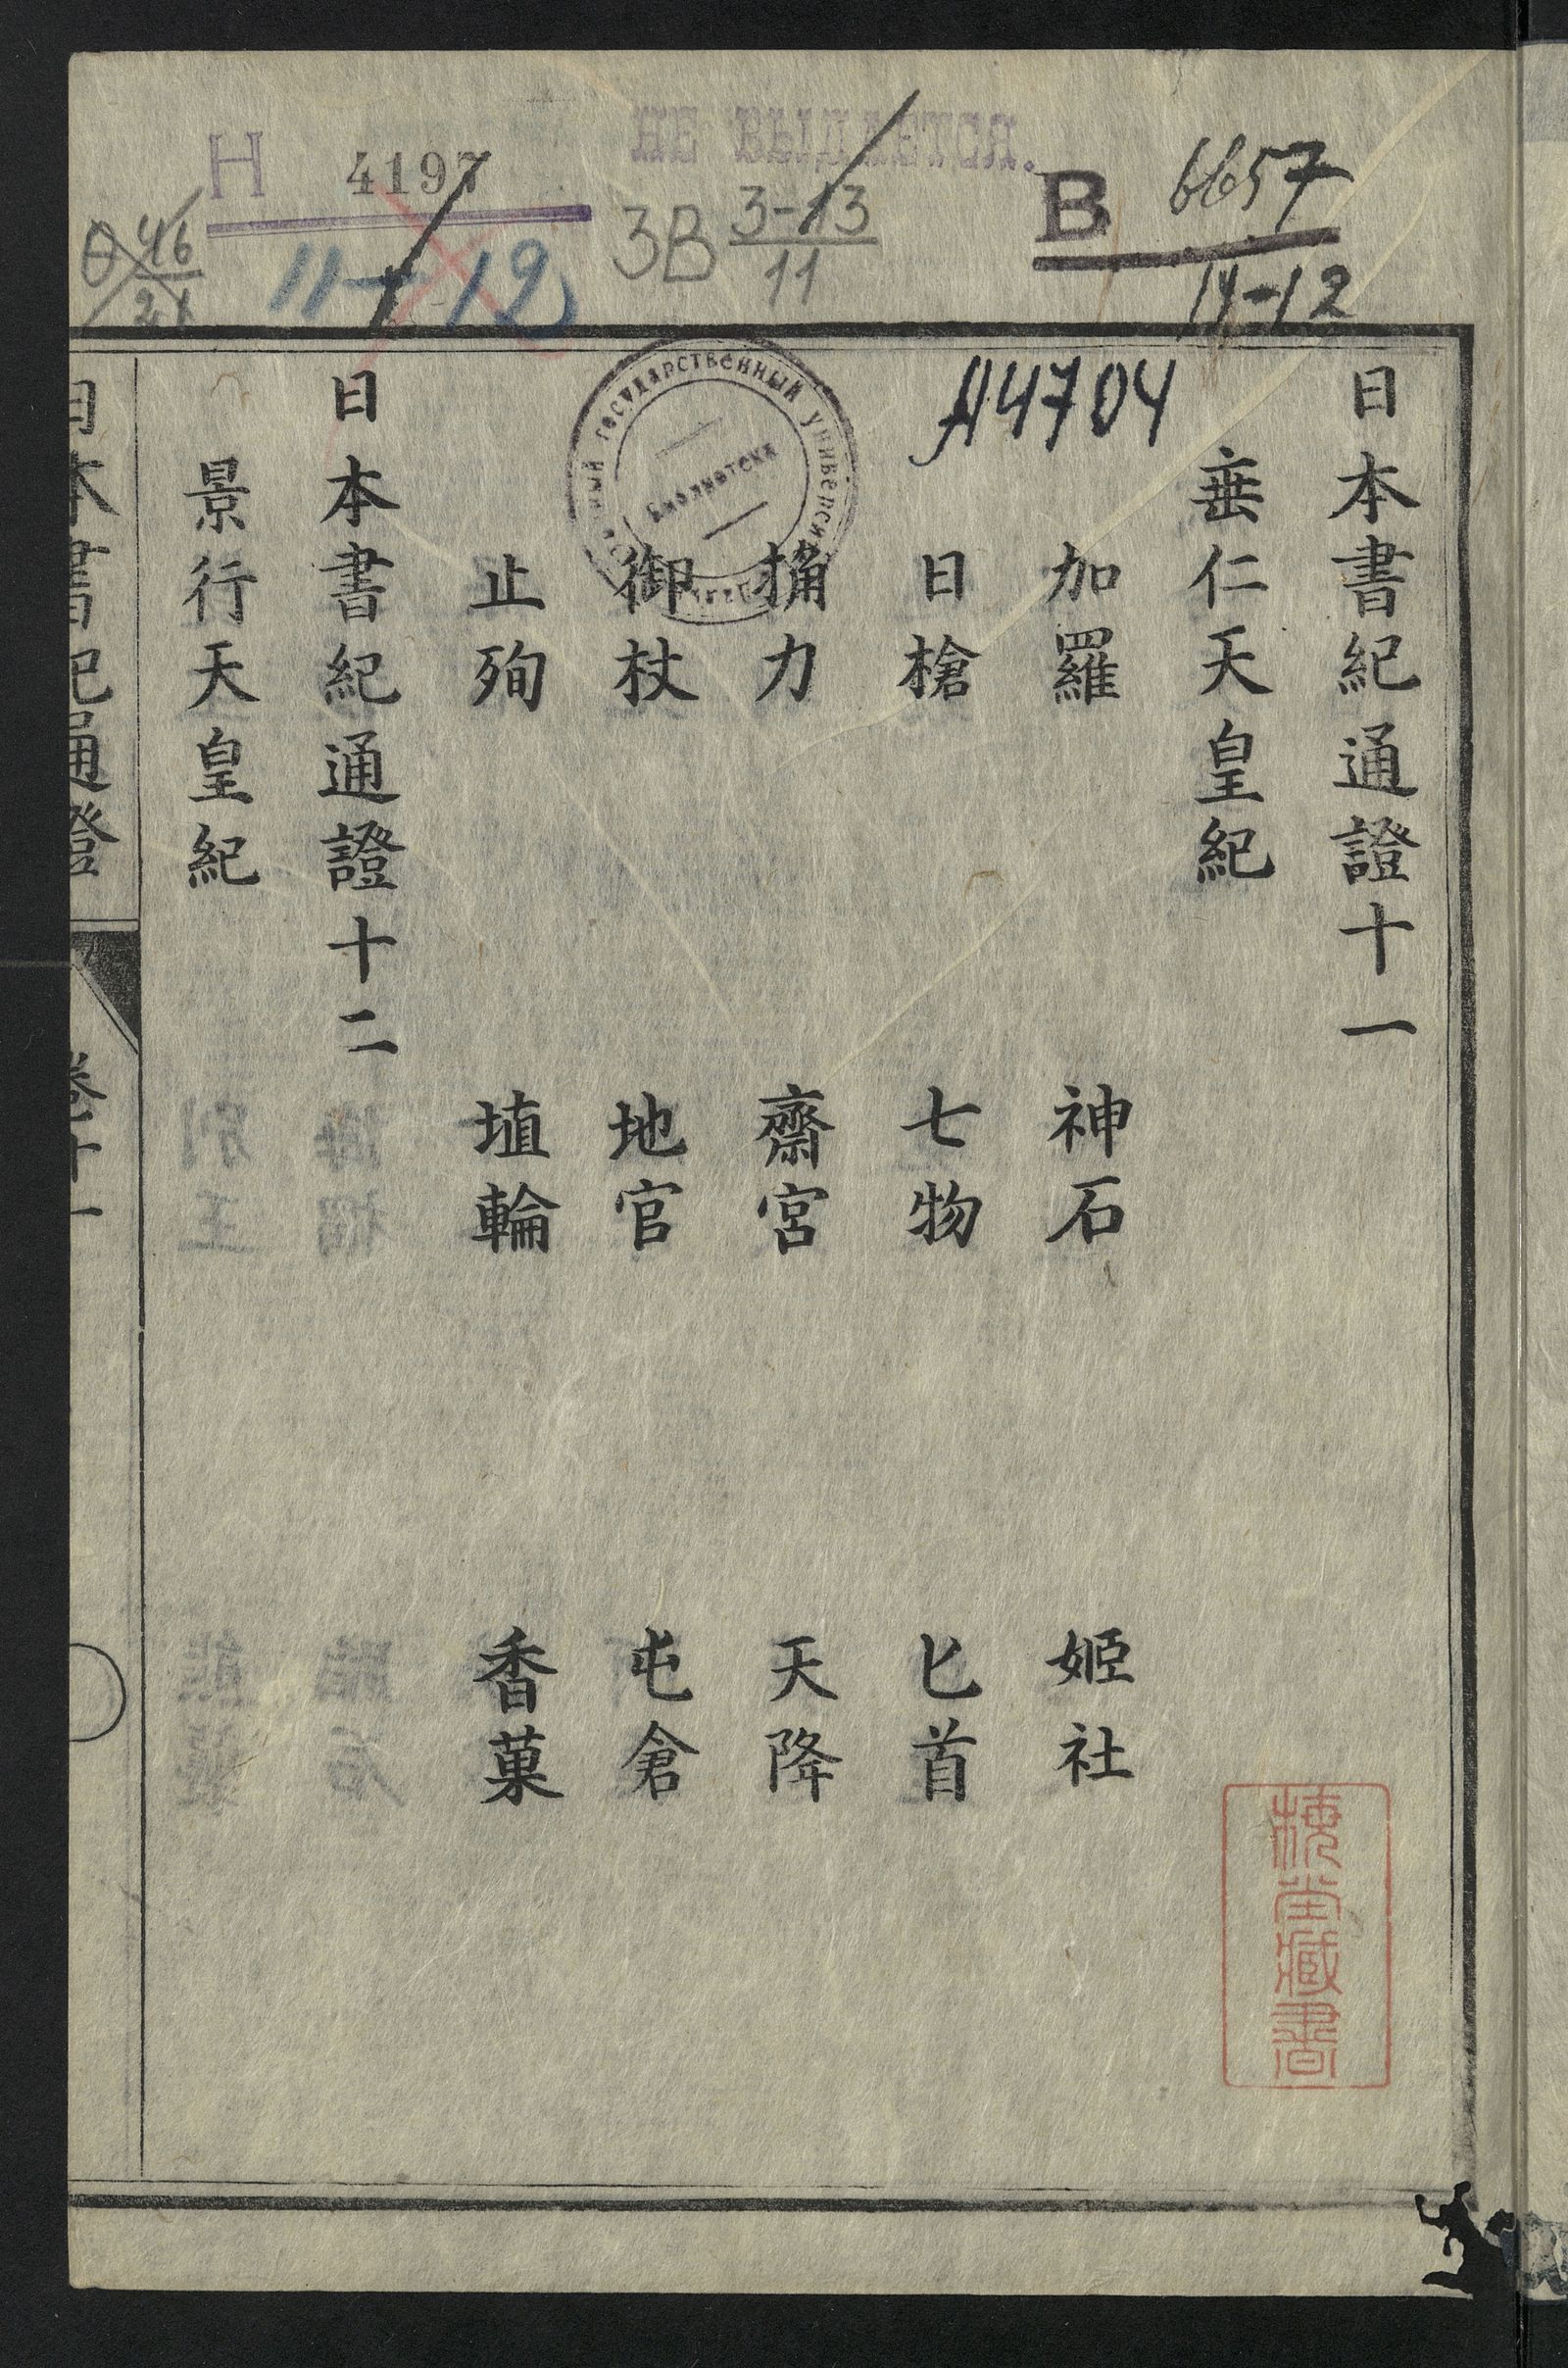 НЕ ВЫДАЕТСЯ.
Н 4197
11-12
3В 3-13
11
В 6657
11-12
А4704
日本書紀通證十一
垂仁天皇紀
加羅 神石 姬社
日槍 七物 匕首
捔力 齋宮 天降
御杖 地官 屯倉
止殉 埴輪 香菓
日本書紀通證十二
景行天皇紀
日本書紀通證 卷十一
государственный универси
Библиотека
藏書